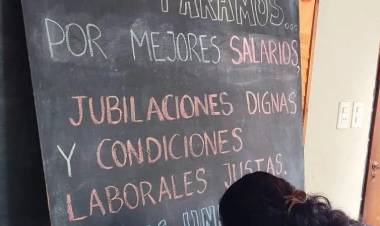 PARAMOS...
POR MEJORES SALARIOS,
JUBILACIONES DIGNAS
Y CONDICIONES
LABORALES JUSTAS.